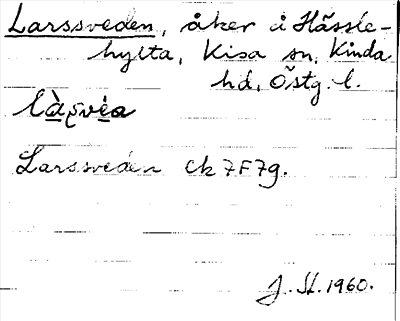 Larssveden, åker å Hässle-
hylta, Kisa sn, Kinda
hd, Östg. l.
Larssveden Ek 7F7g.
J. Sl. 1960.